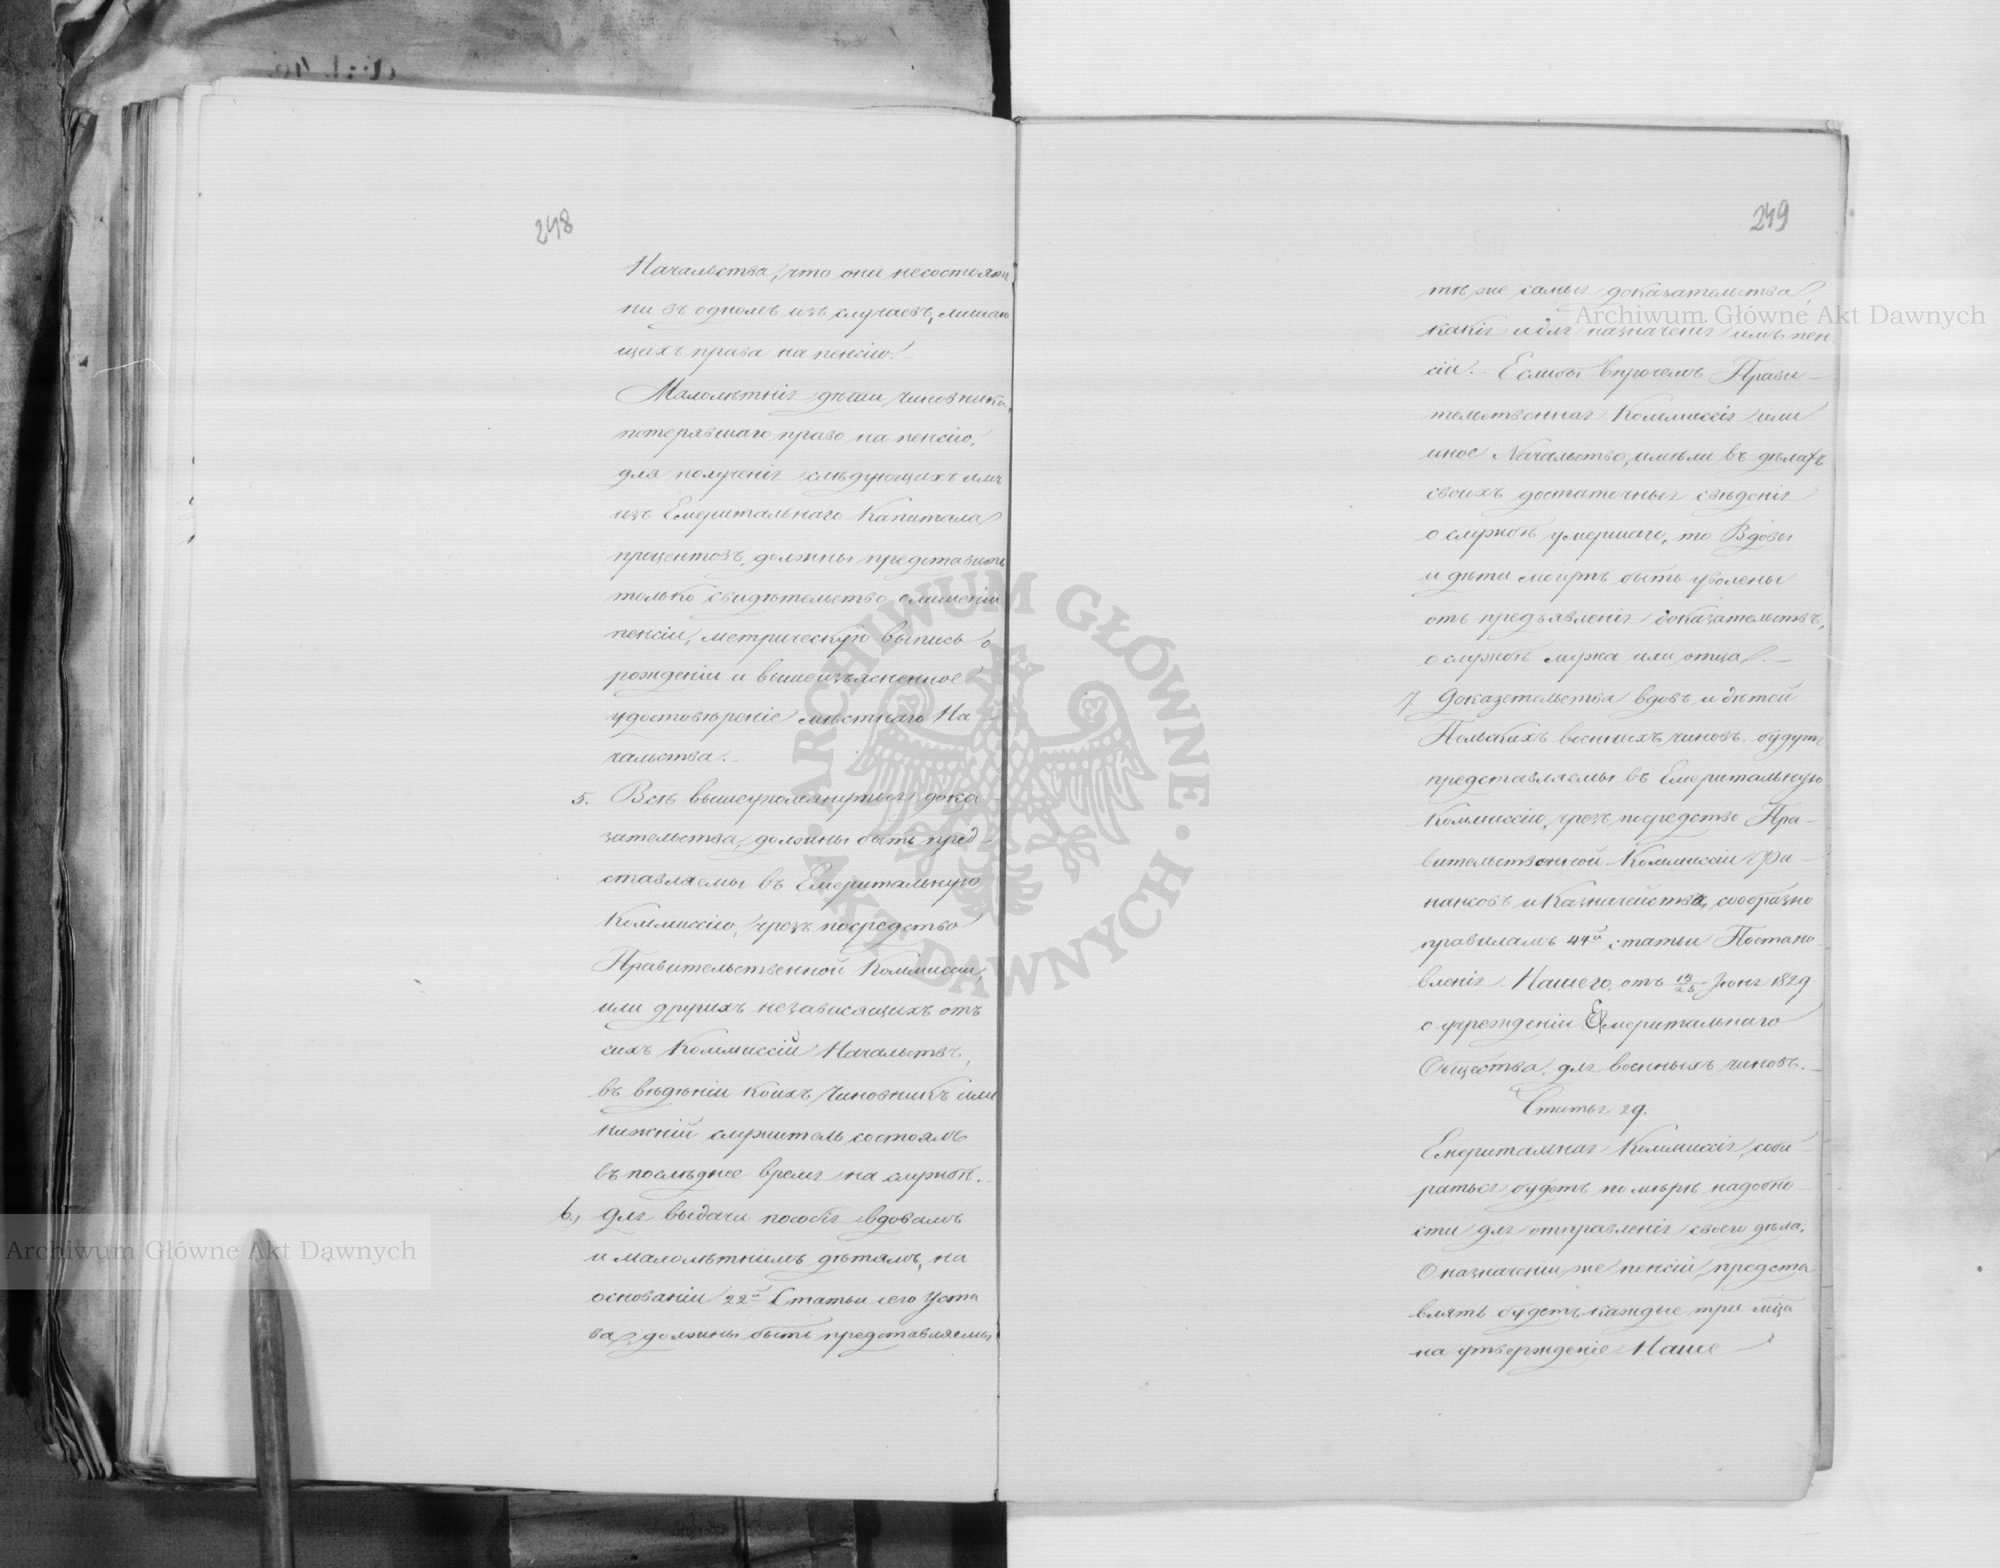 248
Начальства, что они несостоятъ
ни въ одномъ изъ случаевъ, лишаю
щихъ права на пенсію.
Малолѣтніе дѣти Чиновника,
потерявшаго право на пенсію,
для полученія слѣдующихъ имъ
изъ Емеритальнаго Капитала
процентовъ, должны представить
только свидѣтельство о лишеніи
пенсіи, метрическую выпись о
рожденіи и вышеизъясненное
удостовѣреніе мѣстнаго На-
чальства.
5. Всѣ вышеупомянутыя дока-
зательства, должны быть пред-
ставляемы въ Емеритальную
Коммиссію, чрезъ посредство
Правительственной Коммиссіи,
или другихъ независящихъ отъ
сихъ Коммиссій Начальствъ,
въ вѣдѣніи коихъ Чиновникъ или
нижній служитель состоялъ
въ послѣднее время на службѣ.
6., Для выдачи пособія вдовамъ
и малолѣтнимъ дѣтямъ, на
основаніи 22й Статьи сего Уста
ва, должны быть представляемы
249
тѣ же самыя доказательства,
какія и для назначенія имъ пен
сіи. Если бы впрочемъ Прави-
тельственная Коммиссія или
иное Начальство, имѣли въ дѣлахъ
своихъ достаточныя свѣденія
о службѣ умершаго, то Вдовы
и дѣти могутъ быть уволены
отъ предъявленія доказательствъ,
о службѣ мужа или отца.
7. Доказательства вдовъ и дѣтей
Польскихъ военныхъ чиновъ будутъ
представляемы въ Емеритальную
Коммиссію, чрезъ посредство Пра-
вительственной Коммиссіи Фи-
нансовъ и Казначейства, сообразно
правиламъ 44й статьи Постано-
вленія Нашего, отъ 13/25 Іюня 1829
о учрежденіи Емеритальнаго
Общества, для военныхъ чиновъ.
Статья 29.
Емеритальная Коммиссія, соби-
раться будетъ по мѣрѣ надобно-
сти для отправленія своего дѣла,
О назначеніи же пенсій, предста
влять будетъ каждые три мца
на утвержденіе Наше
Archiwum Główne Akt Dawnych
Archiwum Główne Akt Dawnych
ARCHIWUM GŁÓWNE · AKT DAWNYCH ·